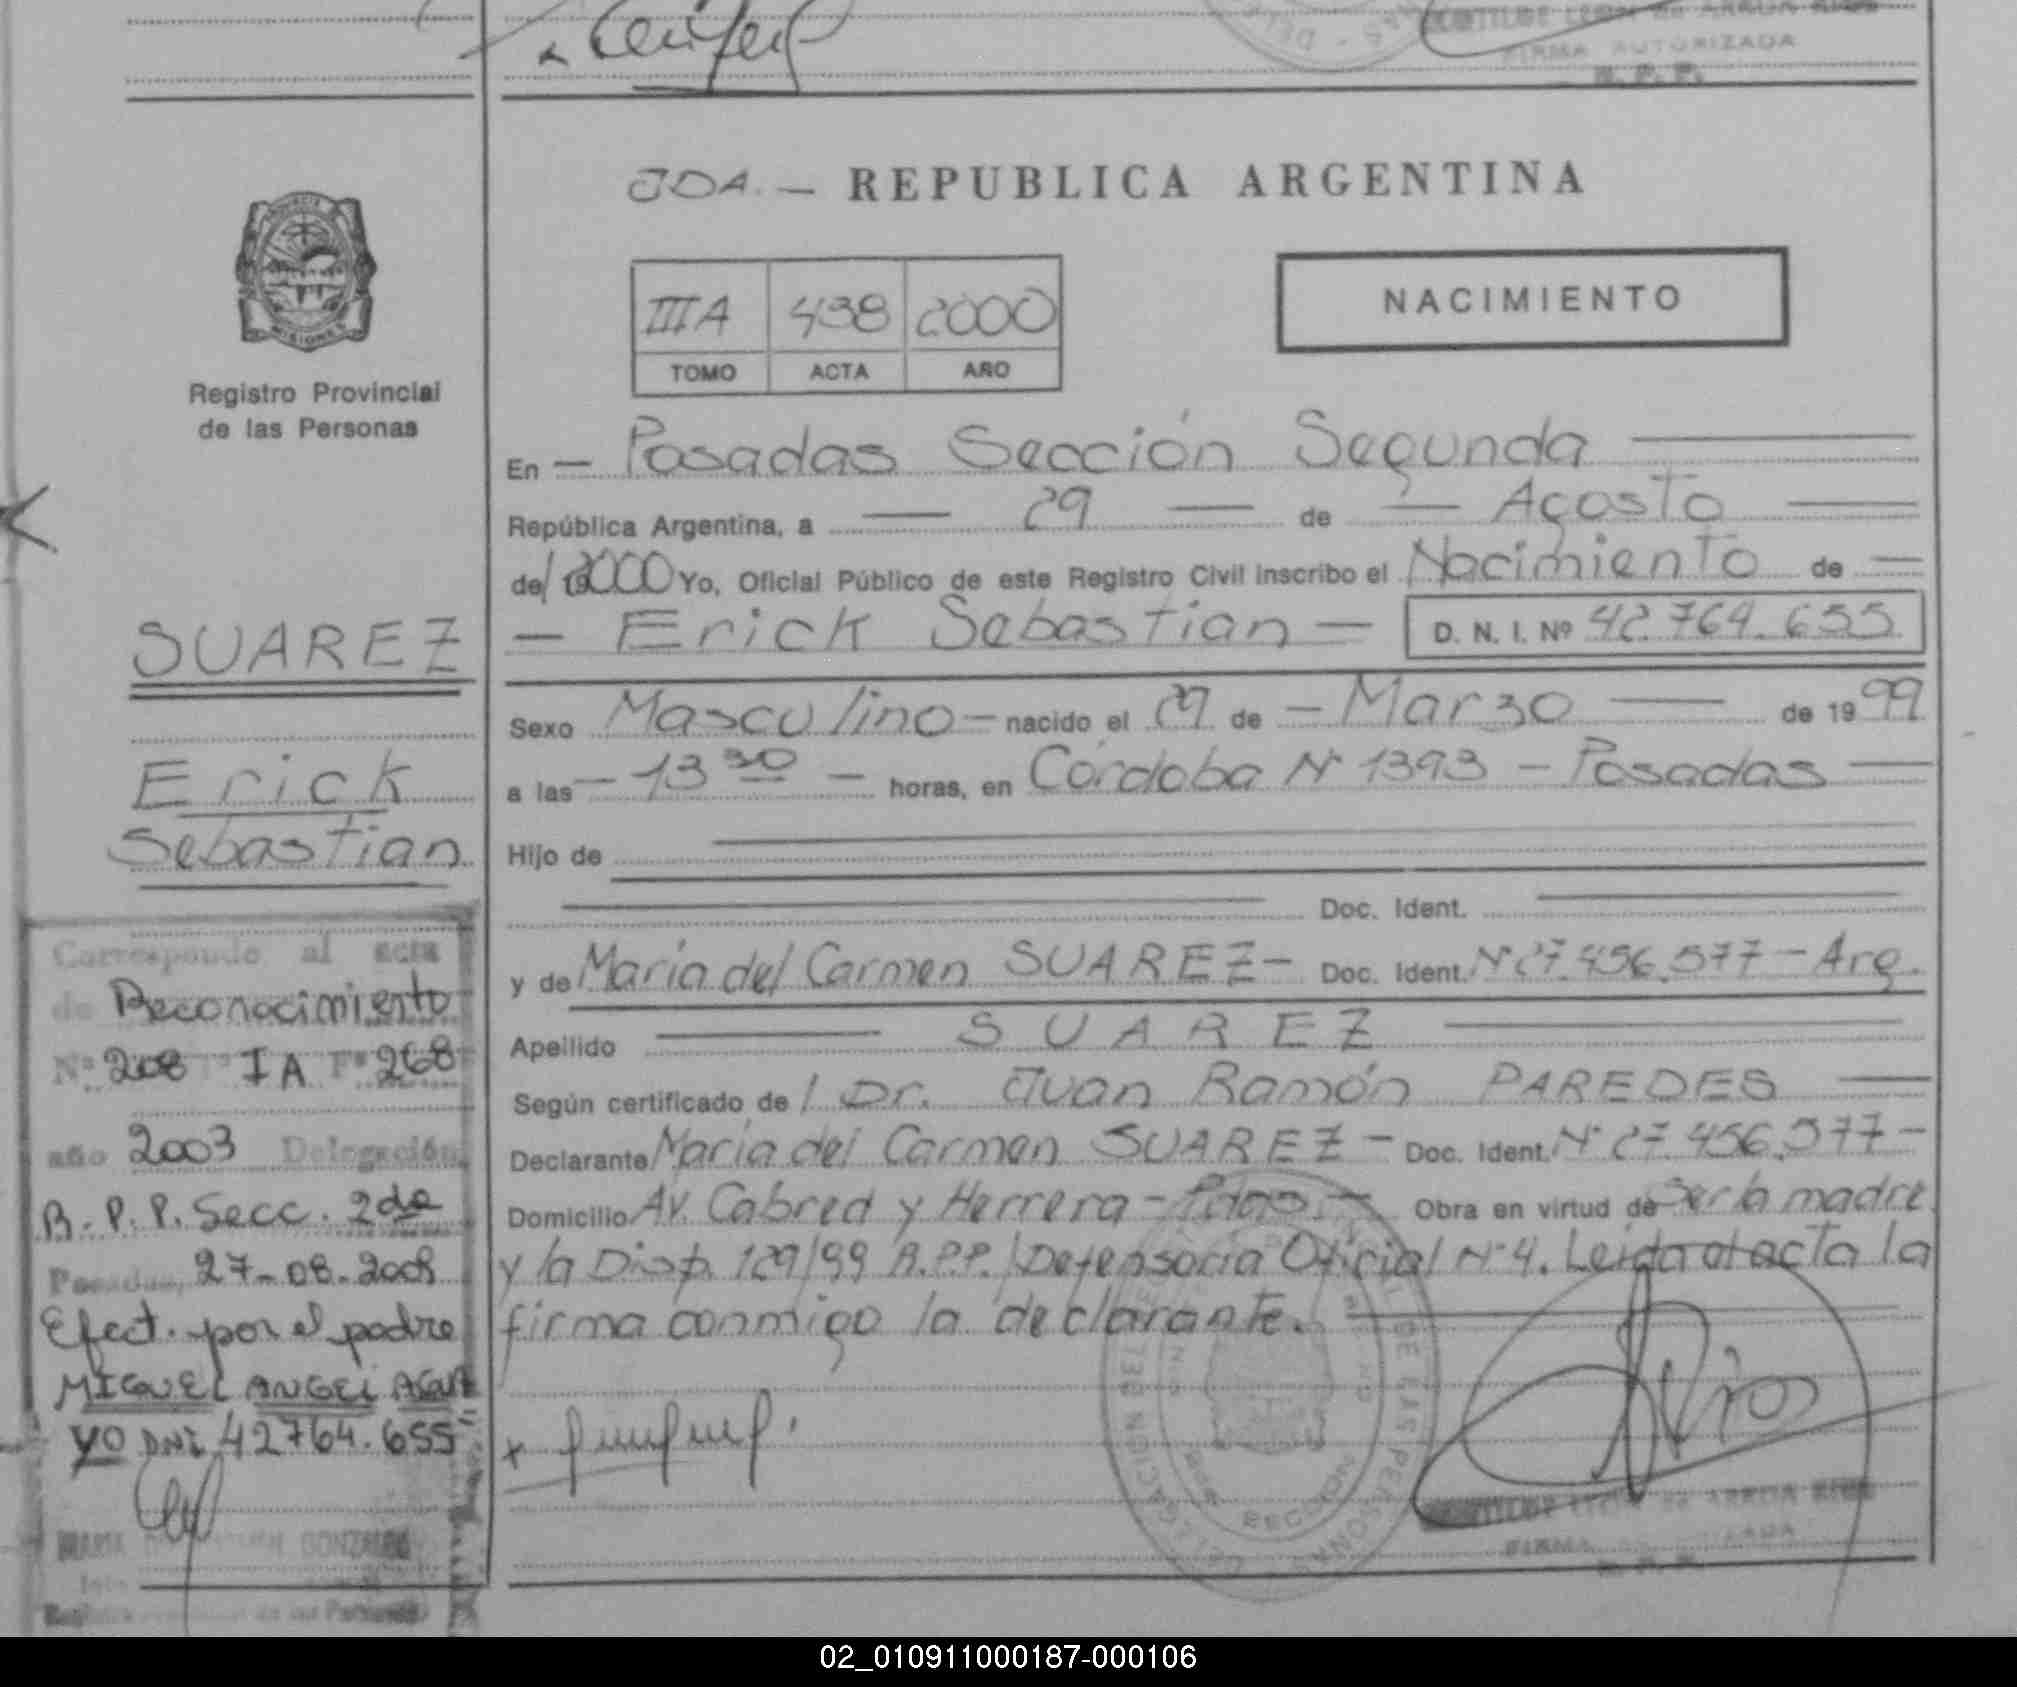 FIRMA AUTORIZADA
R. P. P.
JDA. — REPUBLICA ARGENTINA
IIIA 438 2000
TOMO ACTA AÑO
NACIMIENTO
PROVINCIA DE
MISIONES
Registro Provincial
de las Personas
En — Posadas Sección Segunda
República Argentina, a — 29 — de — Agosto
de/ 192000 Yo, Oficial Público de este Registro Civil inscribo el Nacimiento de —
— Erick Sebastian — D. N. I. Nº 42.764.655
Sexo Masculino — nacido el 29 de — Marzo — de 1999
a las — 13 30 — horas, en Córdoba Nº 1393 — Posadas —
Hijo de
Doc. Ident.
y de María del Carmen SUAREZ — Doc. Ident. Nº 27.456.577 — Arg.
Apellido — SUAREZ —
Según certificado de / Dr. Juan Ramón PAREDES —
Declarante María del Carmen SUAREZ — Doc. Ident. Nº 27.456.577 —
Domicilio Av. Cabred y Herrera — Pdas. — Obra en virtud de ser la madre
y la Disp. 129/99 R.P.P./Defensoría Oficial Nº 4. Leida el acta la
firma conmigo la declarante.
SUAREZ
Erick
Sebastian
Corresponde al acta
de Reconocimiento
Nº 208 Tº IA Fº 268
año 2003 Delegación
R.P.P. Secc. 2da
Posadas, 27-08-2003
Efect. por el padre
MIGUEL ANGEL AGUA
YO DNI 42764.655
Rios
DELEGACION
DE LAS PERSONAS
FIRMA AUTORIZADA
R. P. P.
02_010911000187-000106